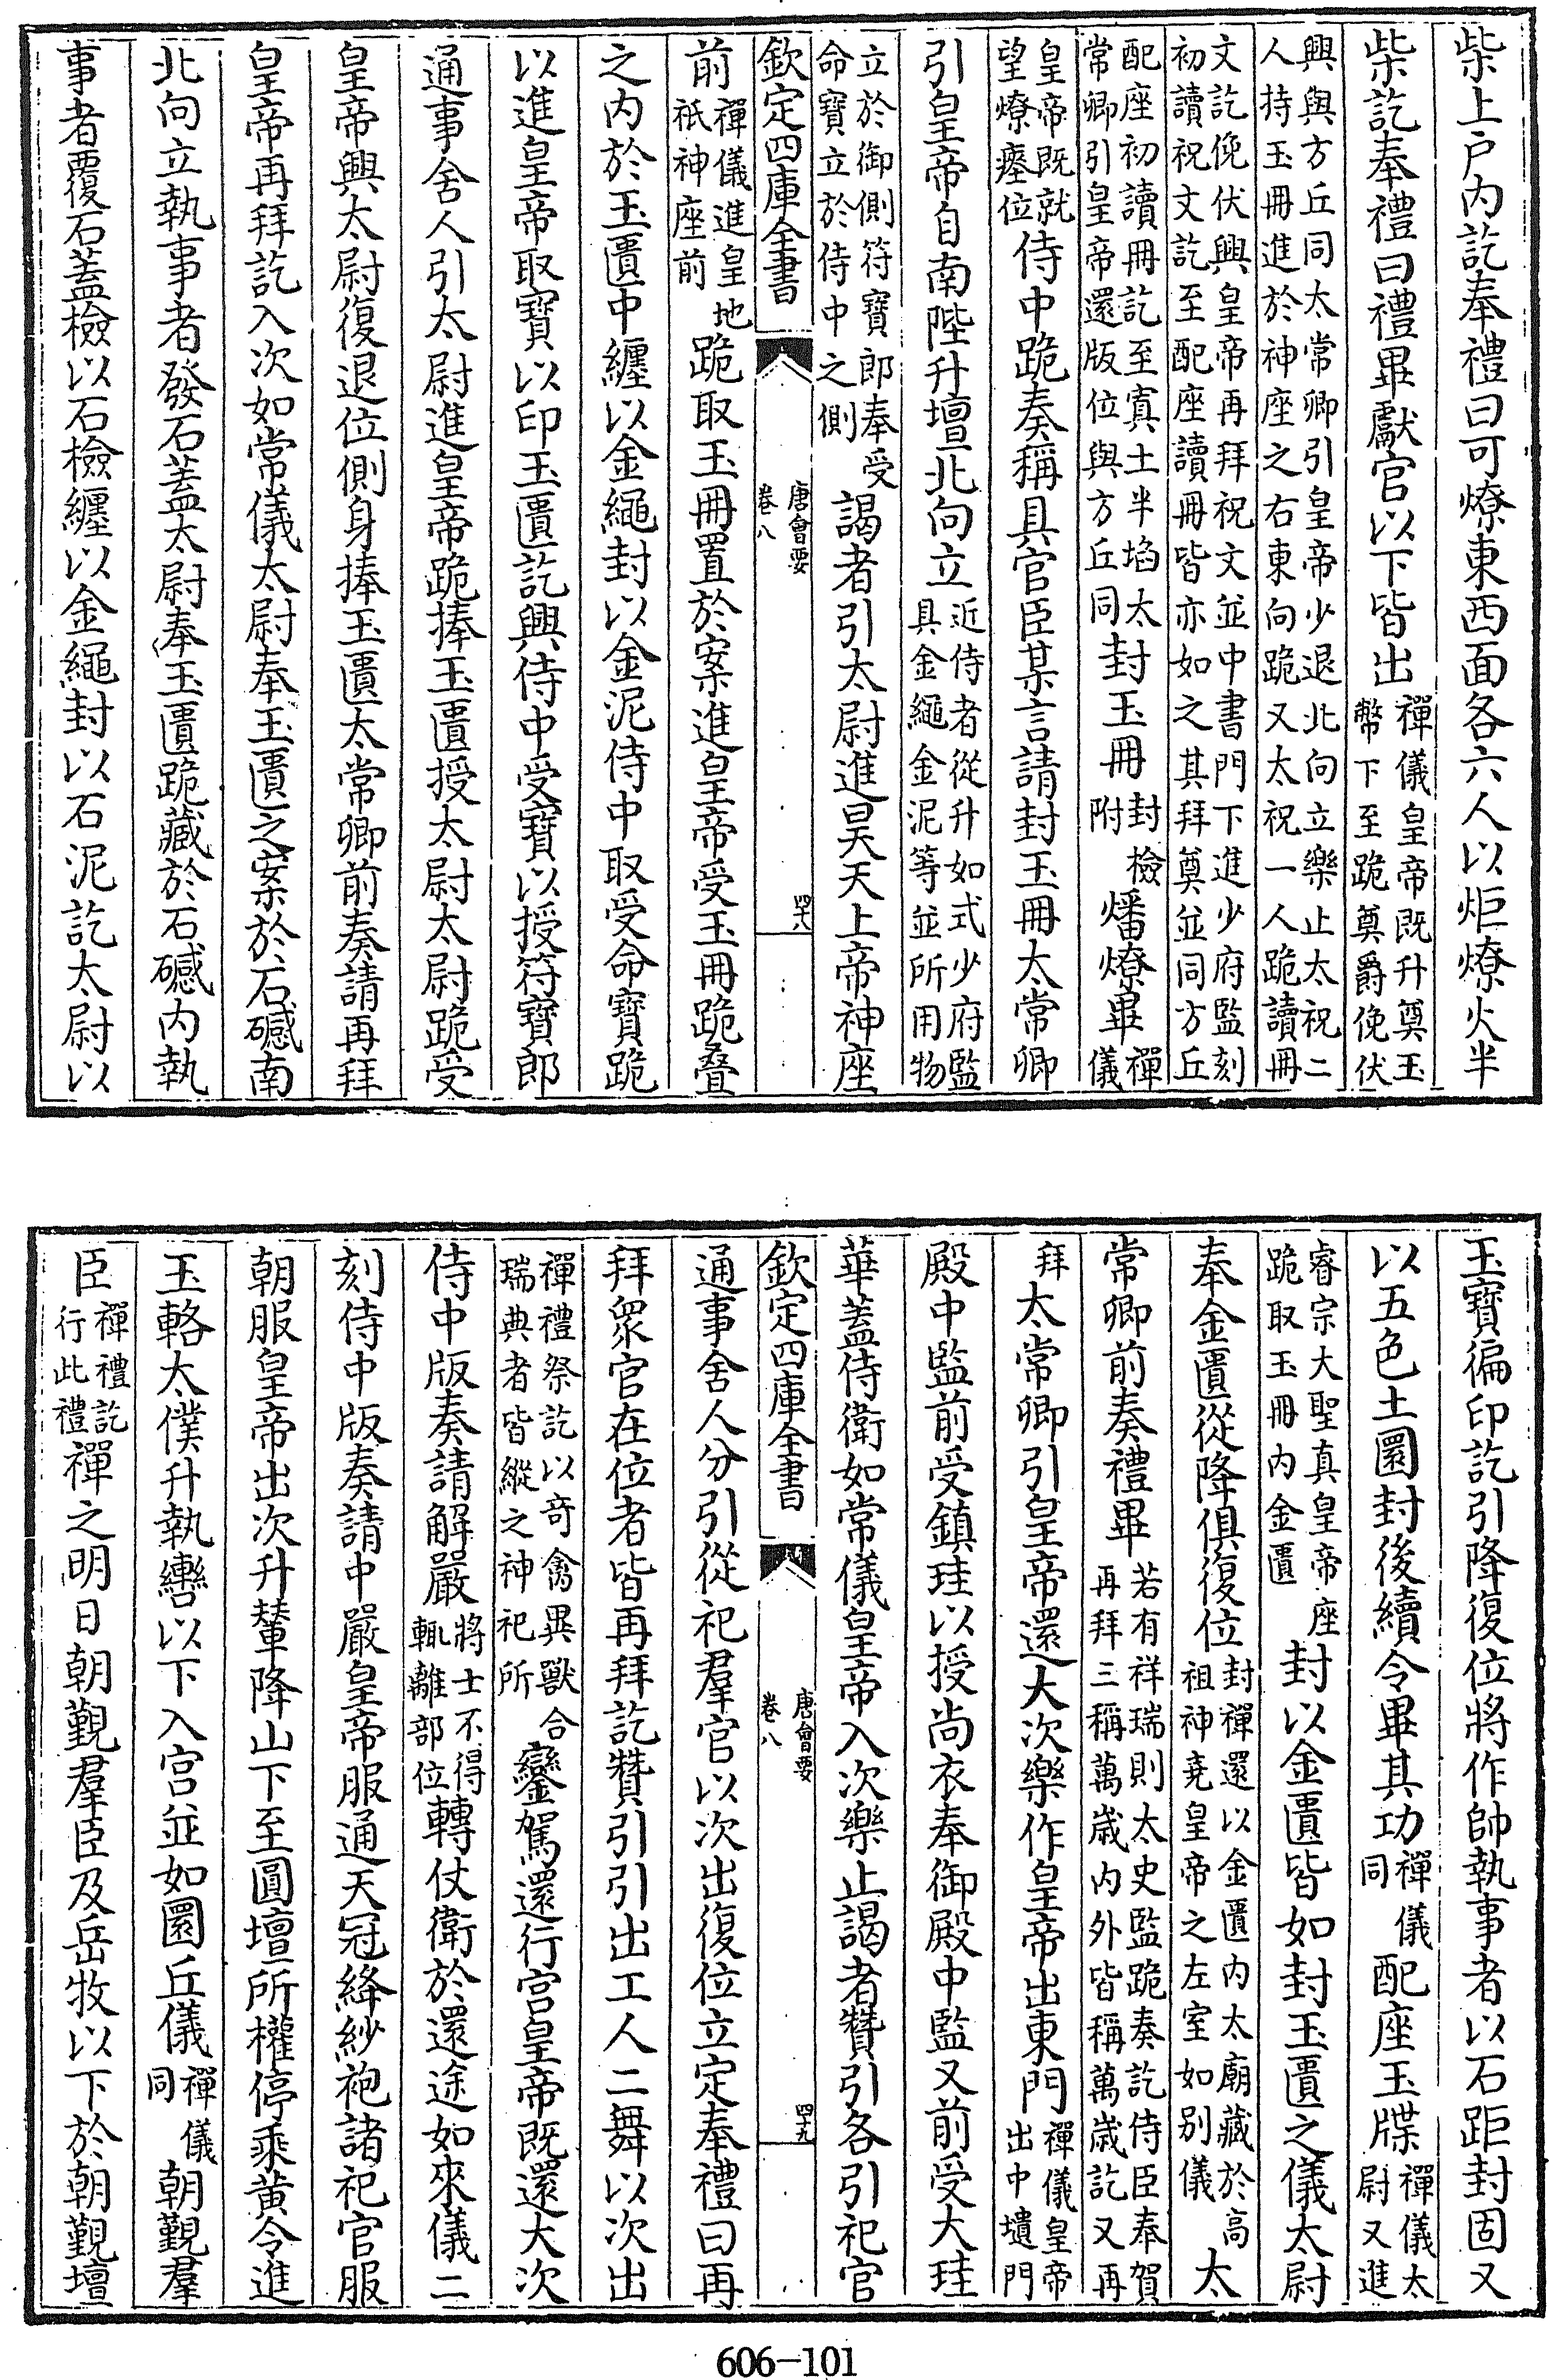 柴上戶内訖奉禮曰可燎東西面各六人以炬燎火半
柴訖奉禮曰禮畢獻官以下皆出禪儀皇帝既升奠玉幣下至跪奠爵俛伏
興與方丘同太常卿引皇帝少退北向立樂止太祝二人持玉冊進於神座之右東向跪又太祝一人跪讀冊
文訖俛伏興皇帝再拜祝文並中書門下進少府監刻初讀祝文訖至配座讀冊皆亦如之其拜奠並同方丘
配座初讀冊訖至寘土半埳太常卿引皇帝還版位與方丘同封玉冊封檢附燔燎畢禪儀
皇帝既就望燎瘞位侍中跪奏稱具官臣某言請封玉冊太常卿
引皇帝自南陛升壇北向立近侍者從升如式少府監具金繩金泥等並所用物
立於御側符寶郎奉受命寶立於侍中之側謁者引太尉進昊天上帝神座
欽定四庫全書 唐會要 卷八 四十八
前禪儀進皇地祇神座前跪取玉冊置於案進皇帝受玉冊跪疊
之内於玉匱中纏以金繩封以金泥侍中取受命寶跪
以進皇帝取寶以印玉匱訖興侍中受寶以授符寶郎
通事舍人引太尉進皇帝跪捧玉匱授太尉太尉跪受
皇帝興太尉復退位側身捧玉匱太常卿前奏請再拜
皇帝再拜訖入次如常儀太尉奉玉匱之案於石䃭南
北向立執事者發石蓋太尉奉玉匱跪藏於石䃭内執
事者覆石蓋檢以石檢纏以金繩封以石泥訖太尉以
玉寶徧印訖引降復位將作帥執事者以石距封固又
以五色土圜封後續令畢其功禪儀同配座玉牒禪儀太尉又進
睿宗大聖真皇帝座跪取玉冊内金匱封以金匱皆如封玉匱之儀太尉
奉金匱從降俱復位封禪還以金匱内太廟藏於高祖神堯皇帝之左室如别儀太
常卿前奏禮畢若有祥瑞則太史監跪奏訖侍臣奉賀再拜三稱萬歲内外皆稱萬歲訖又再
拜太常卿引皇帝還大次樂作皇帝出東門禪儀皇帝出中壝門
殿中監前受鎮珪以授尚衣奉御殿中監又前受大珪
華蓋侍衛如常儀皇帝入次樂止謁者贊引各引祀官
欽定四庫全書 唐會要 卷八 四十九
通事舍人分引從祀羣官以次出復位立定奉禮曰再
拜衆官在位者皆再拜訖贊引引出工人二舞以次出
禪禮祭訖以奇禽異獸合瑞典者皆縱之神祀所鑾駕還行宫皇帝既還大次
侍中版奏請解嚴將士不得輒離部位轉仗衛於還途如來儀二
刻侍中版奏請中嚴皇帝服通天冠絳紗袍諸祀官服
朝服皇帝出次升輦降山下至圓壇所權停乘黄令進
玉輅太僕升執轡以下入宫並如圜丘儀禪儀同朝覲羣
臣禪禮訖行此禮禪之明日朝覲羣臣及岳牧以下於朝覲壇
606-101